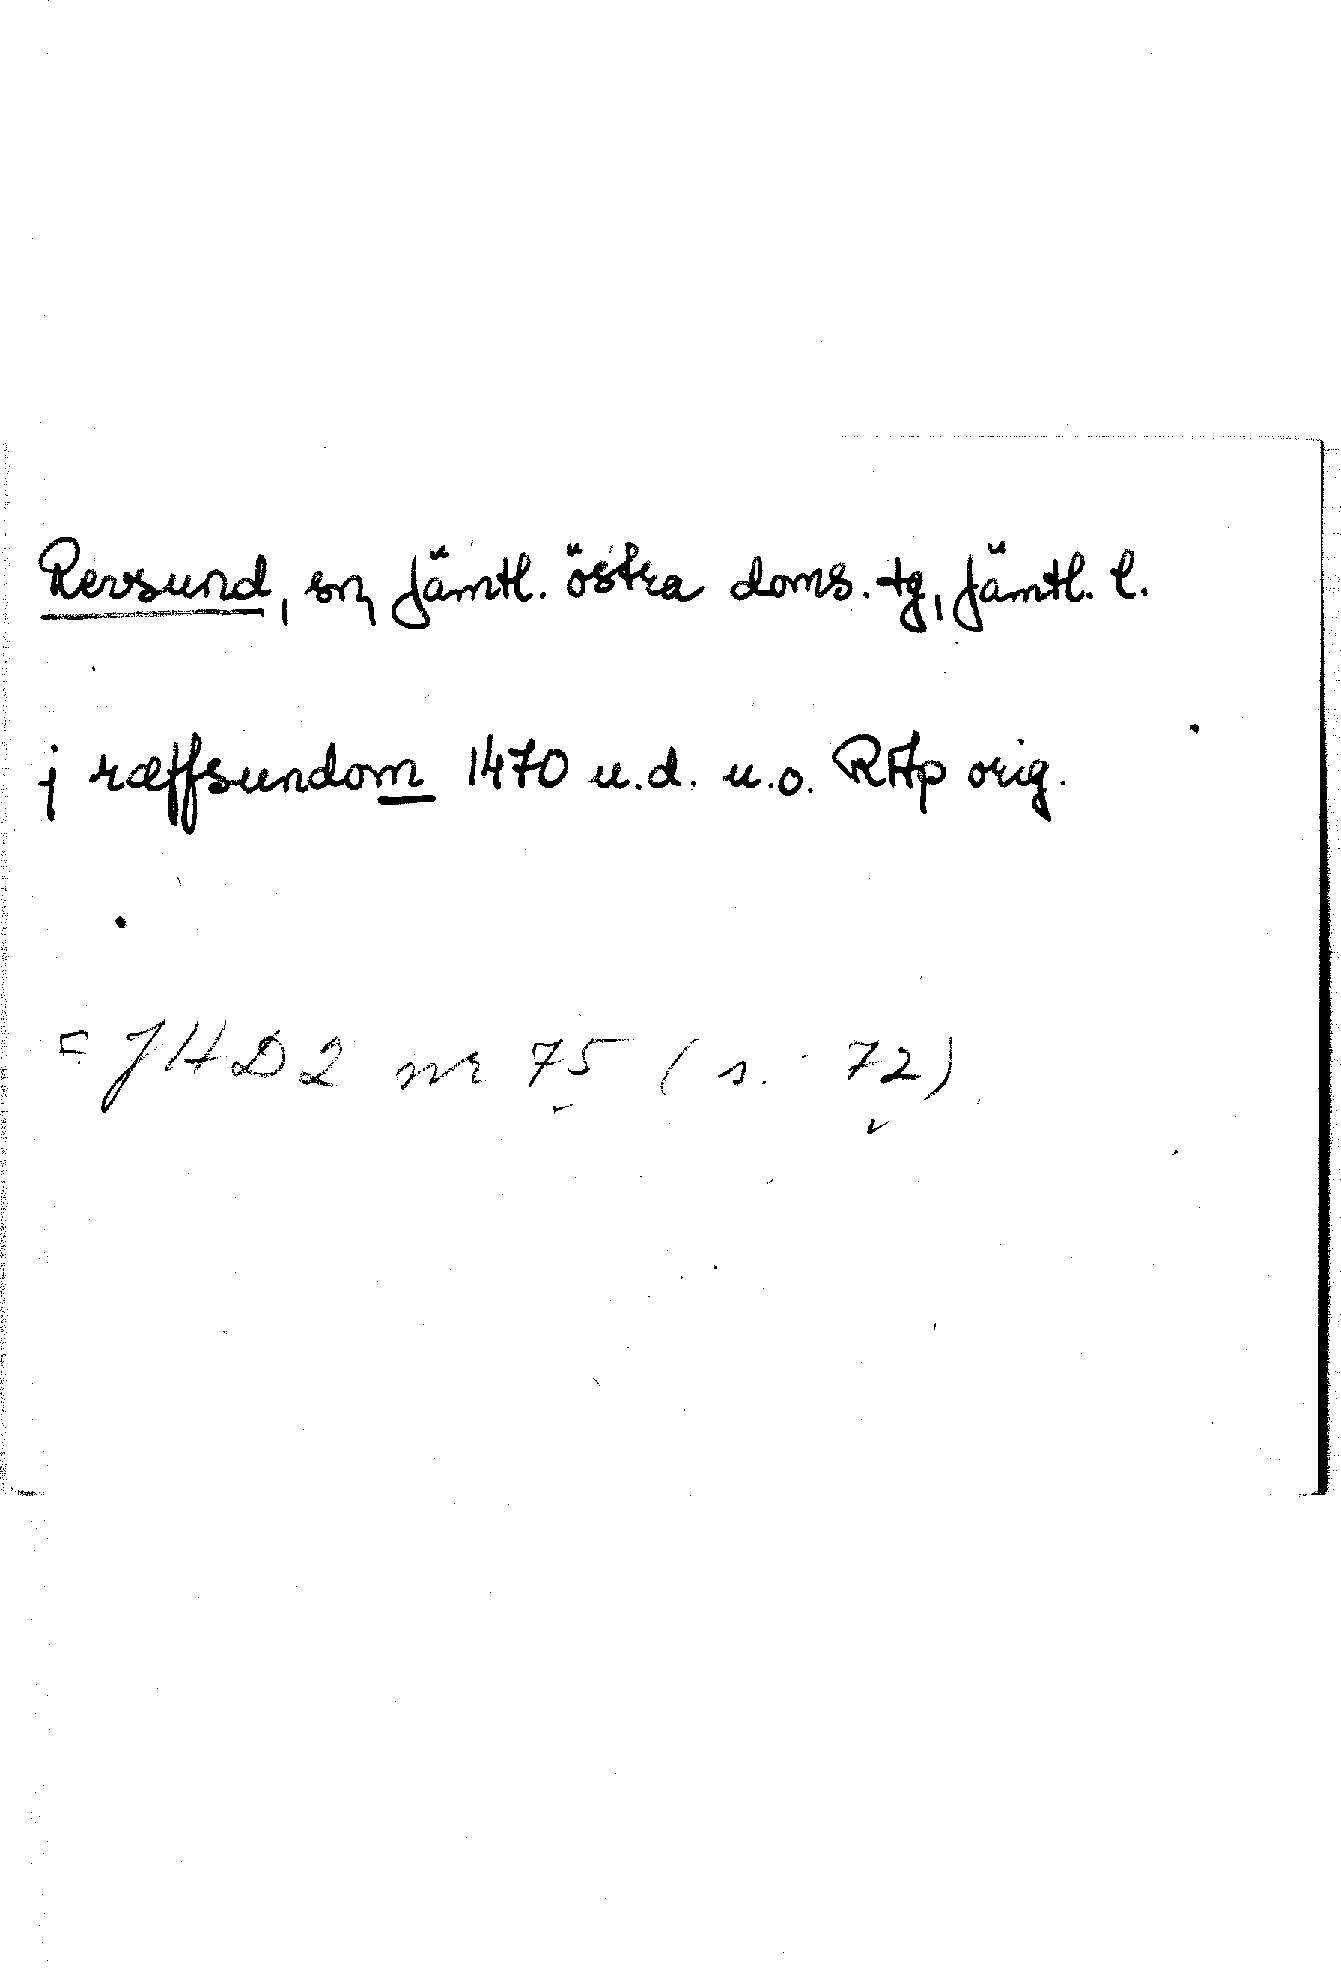 Revsund, sn, Jämtl. östra doms. tg, Jämtl. l.
j ræffsundom 1470 u.d. u.o. RAp orig.
= JHD 2 nr 75 (s. 72)